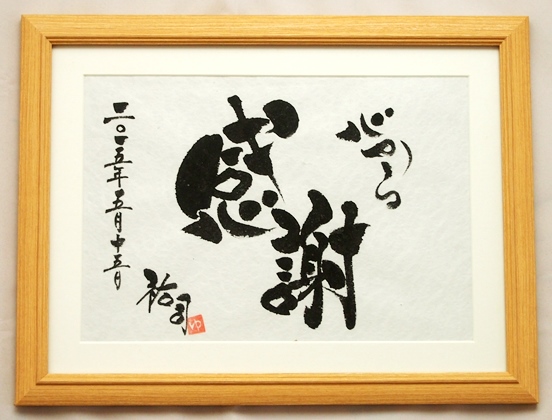 心から
感謝
二〇一五年五月十五日
祐司
ゆ